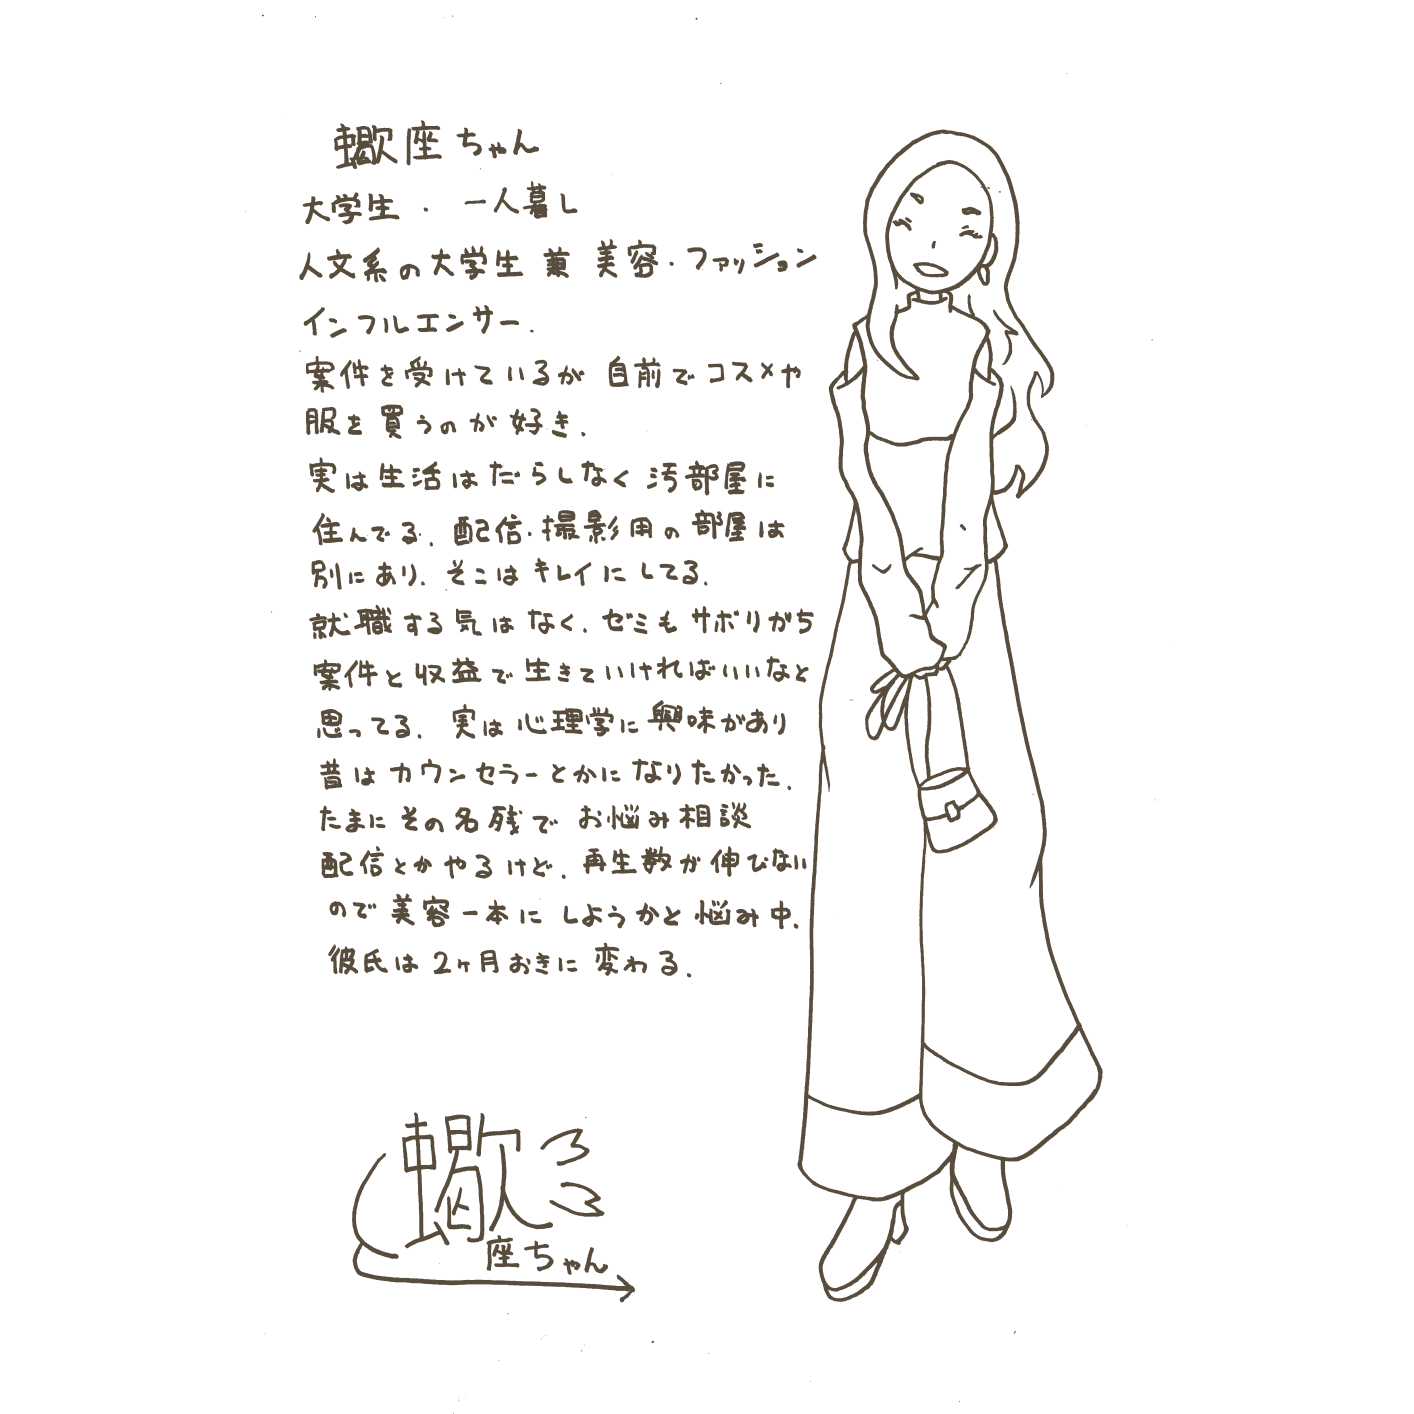 蠍座ちゃん
大学生・一人暮し
人文系の大学生 兼 美容・ファッション
インフルエンサー.
案件を受けているが 自前でコスメや
服を買うのが好き.
実は生活はだらしなく汚部屋に
住んでる. 配信・撮影用の部屋は
別にあり. そこはキレイにしてる.
就職する気はなく. ゼミもサボリがち
案件と収益で生きていければいいなと
思ってる. 実は心理学に興味があり
昔はカウンセラーとかになりたかった.
たまにその名残でお悩み相談
配信とかやるけど. 再生数が伸びない
ので美容一本にしようかと悩み中.
彼氏は2ヶ月おきに変わる.
蠍
座ちゃん